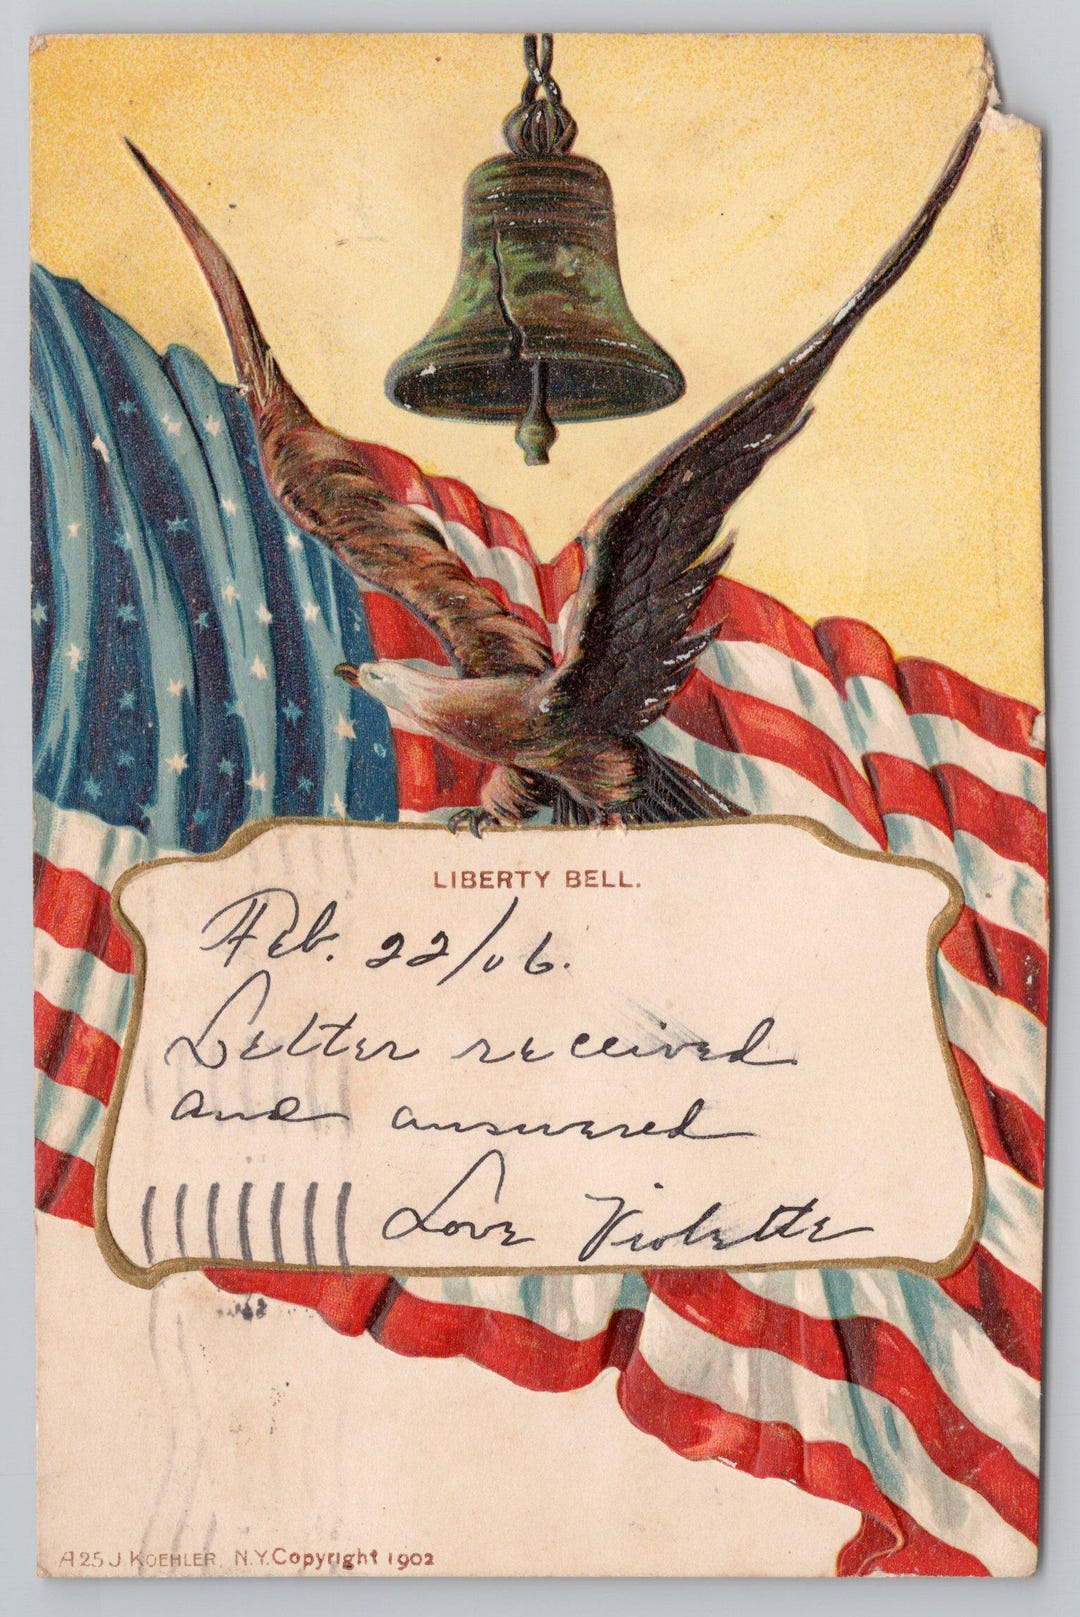 LIBERTY BELL.
Feb. 22/06.
Letter received
and answered
Love Violette
A25 J KOEHLER, N.Y. Copyright 1902